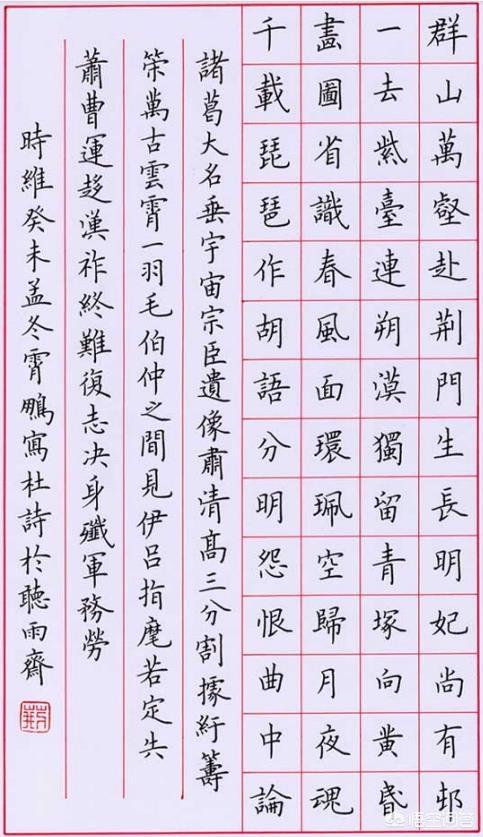 群山萬壑赴荆門生長明妃尚有邨
一去紫臺連朔漠獨留青塚向黄昬
畫圖省識春風面環珮空歸月夜魂
千載琵琶作胡語分明怨恨曲中論
諸葛大名垂宇宙宗臣遺像肅清髙三分割據紆籌
策萬古雲霄一羽毛伯仲之間見伊吕指麾若定失
蕭曹運趍漢祚終難復志决身殲軍務勞
時維癸未孟冬霄鵬寫杜詩於聽雨齋
悟空问答